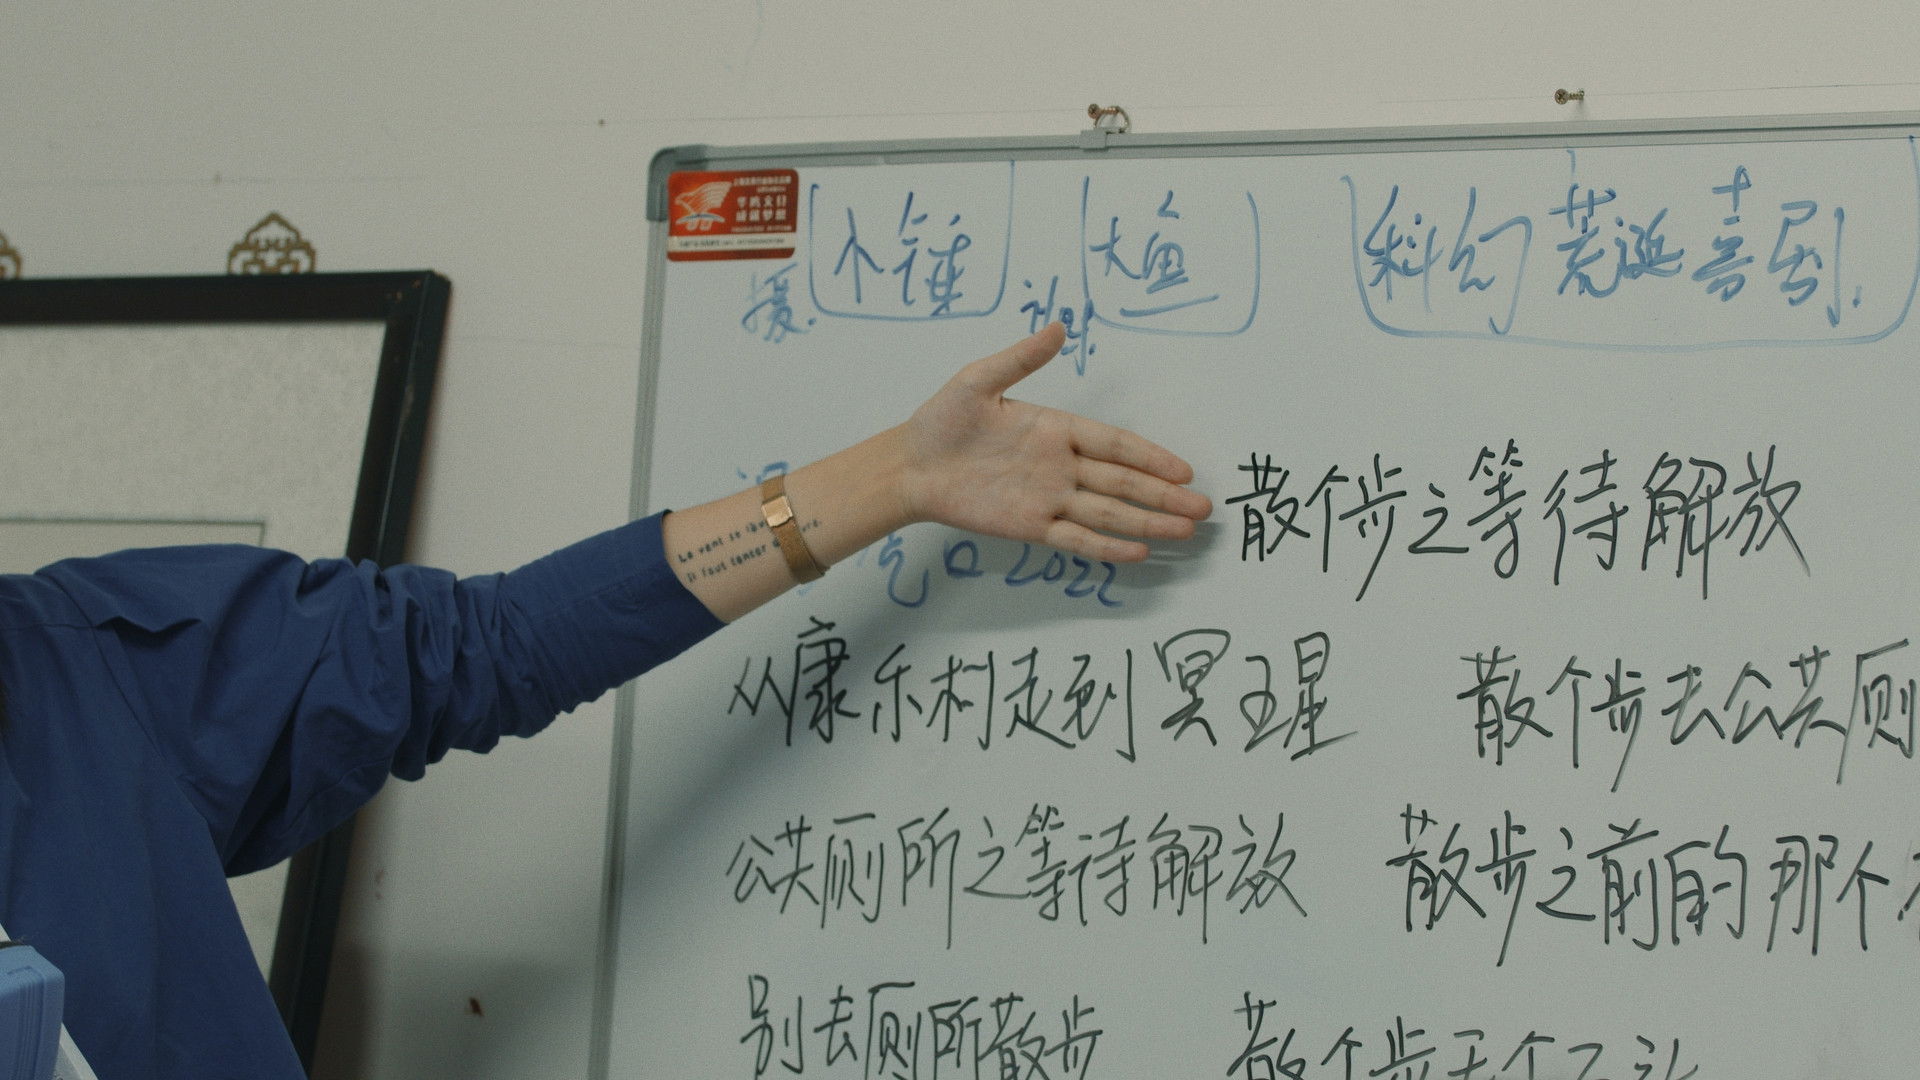 小锤 大鱼 科幻荒诞喜剧.
散个步之等待解放
Le vent se
Il faut tenter
口2022
从康乐村走到冥王星 散个步去公共厕
公共厕所之等待解放 散步之前的那个
别去厕所散步 散个步